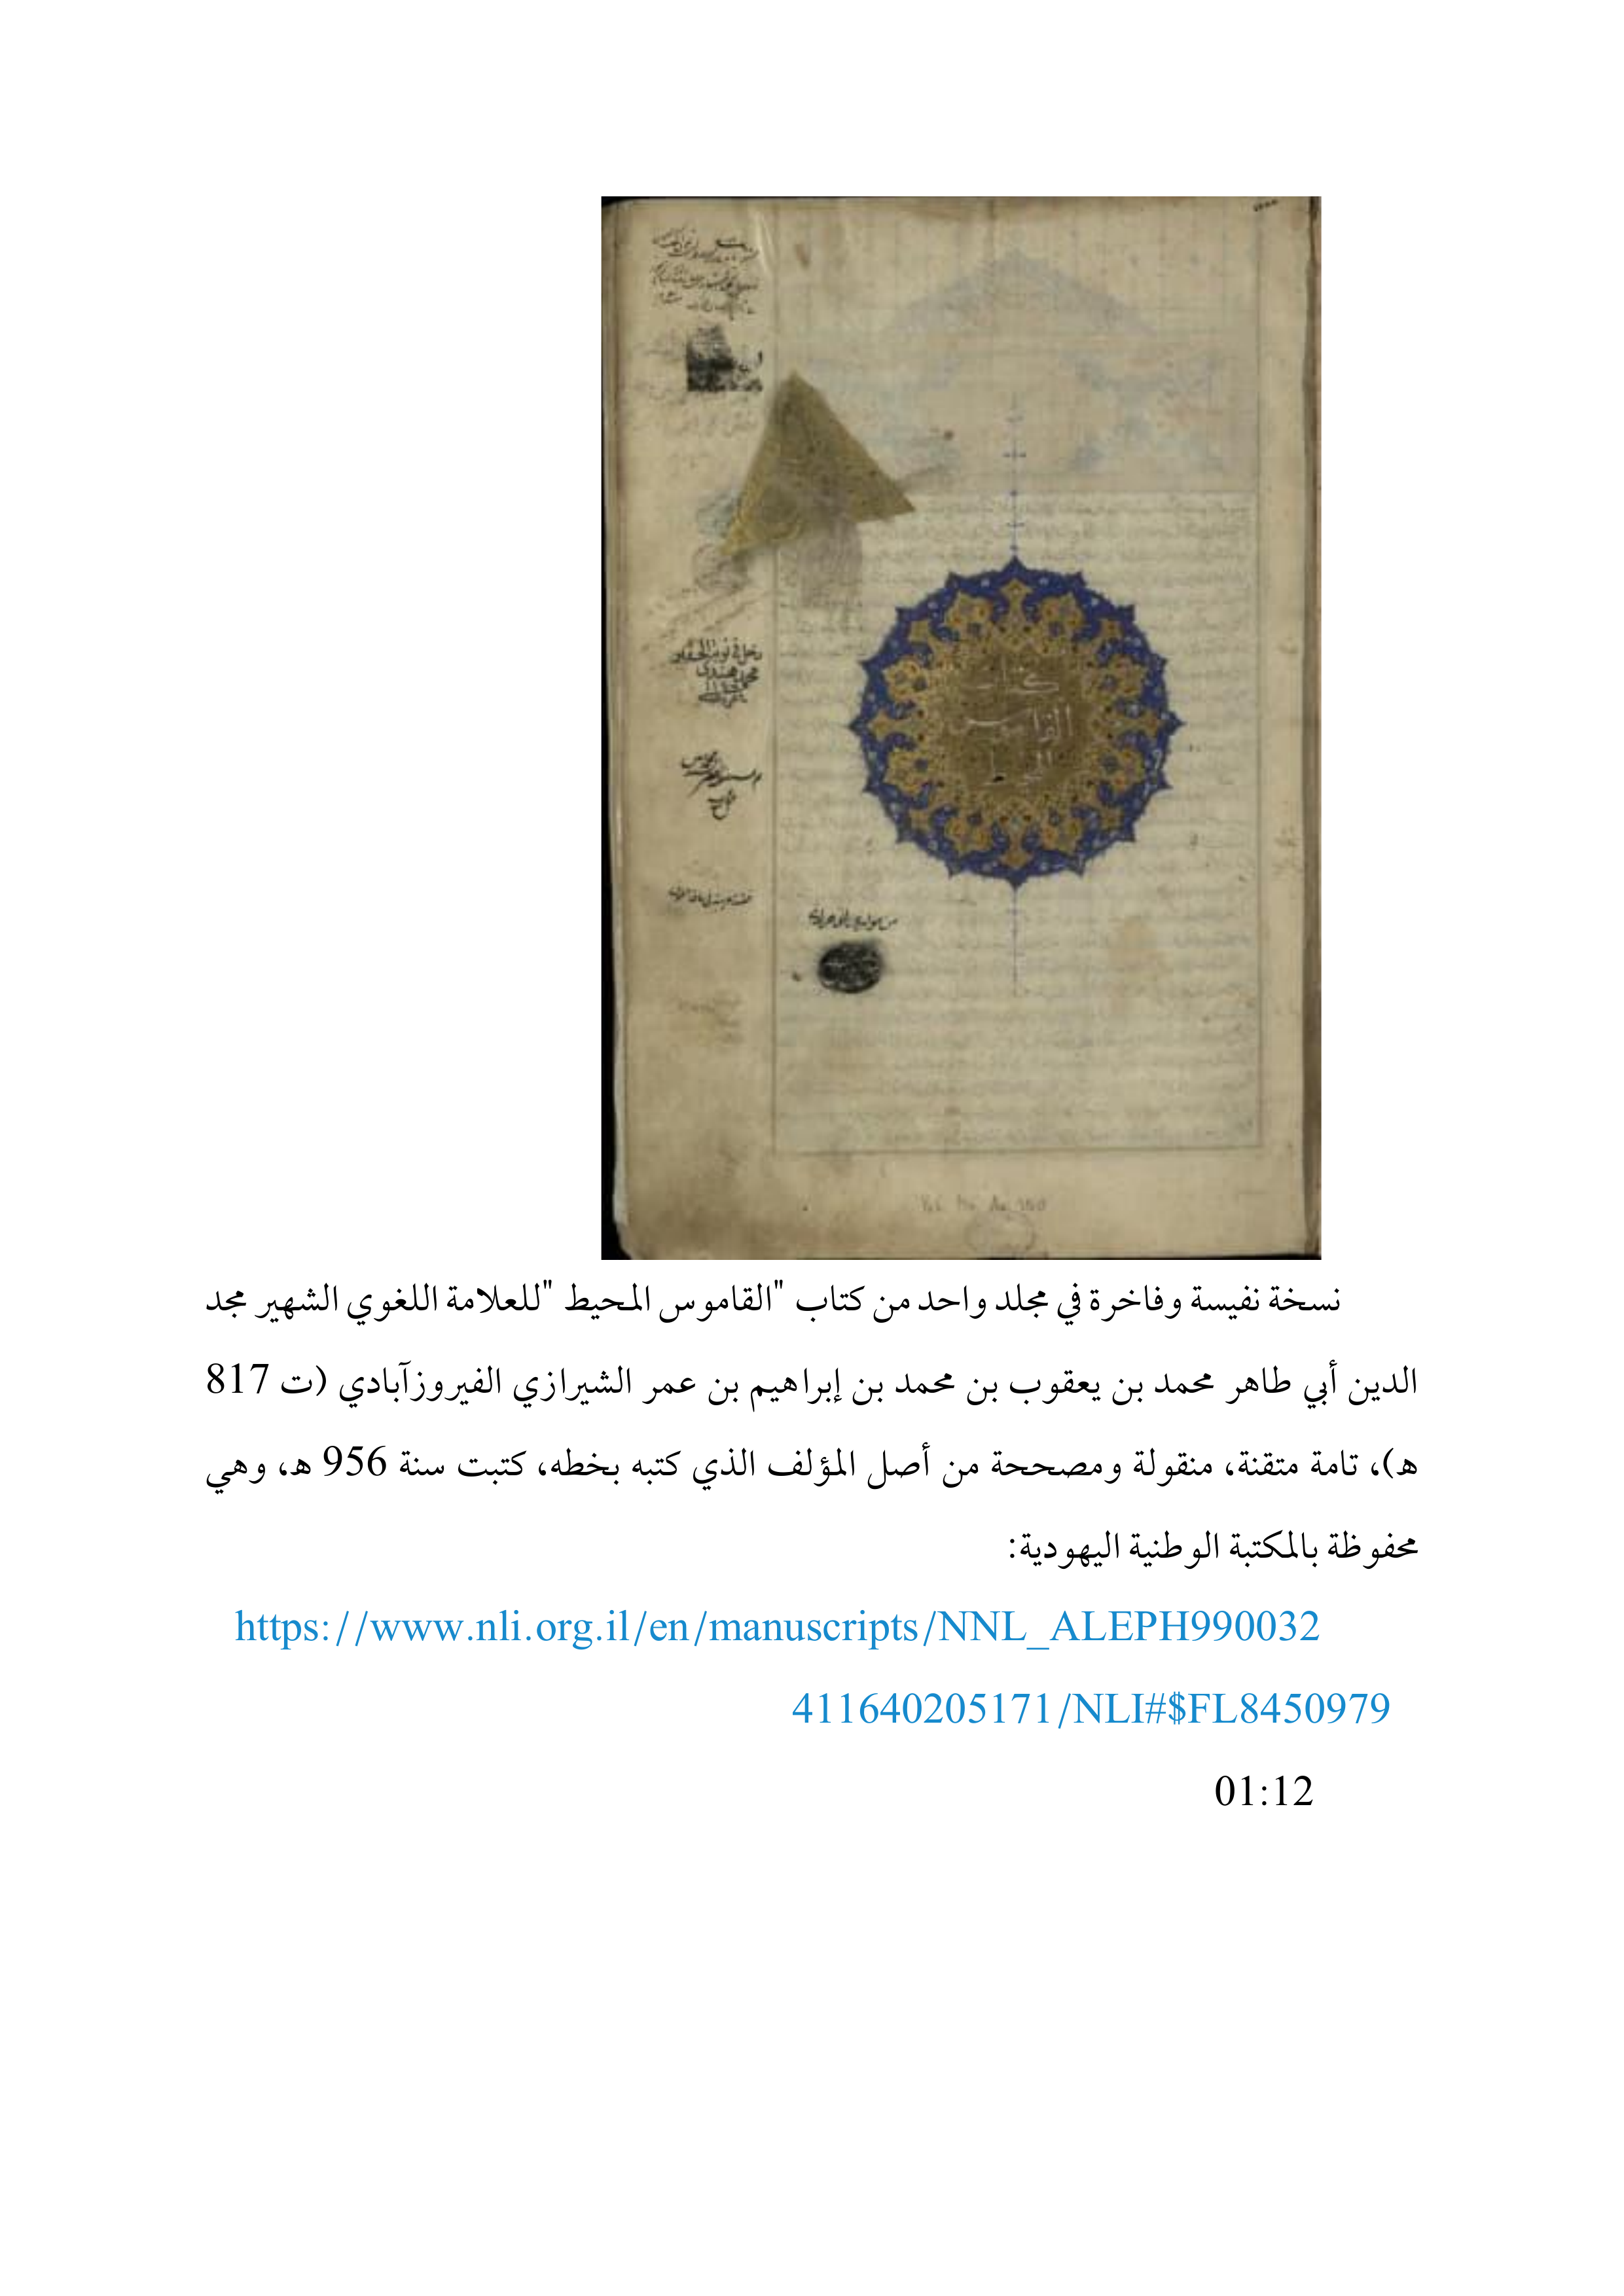 كتاب
القاموس
المحيط
نسخة نفيسة وفاخرة في مجلد واحد من كتاب "القاموس المحيط "للعلامة اللغوي الشهير مجد
الدين أبي طاهر محمد بن يعقوب بن محمد بن إبراهيم بن عمر الشيرازي الفيروزآبادي (ت 817
هـ)، تامة متقنة، منقولة ومصححة من أصل المؤلف الذي كتبه بخطه، كتبت سنة 956 هـ، وهي
محفوظة بالمكتبة الوطنية اليهودية:
https://www.nli.org.il/en/manuscripts/NNL_ALEPH990032
411640205171/NLI#$FL8450979
01:12